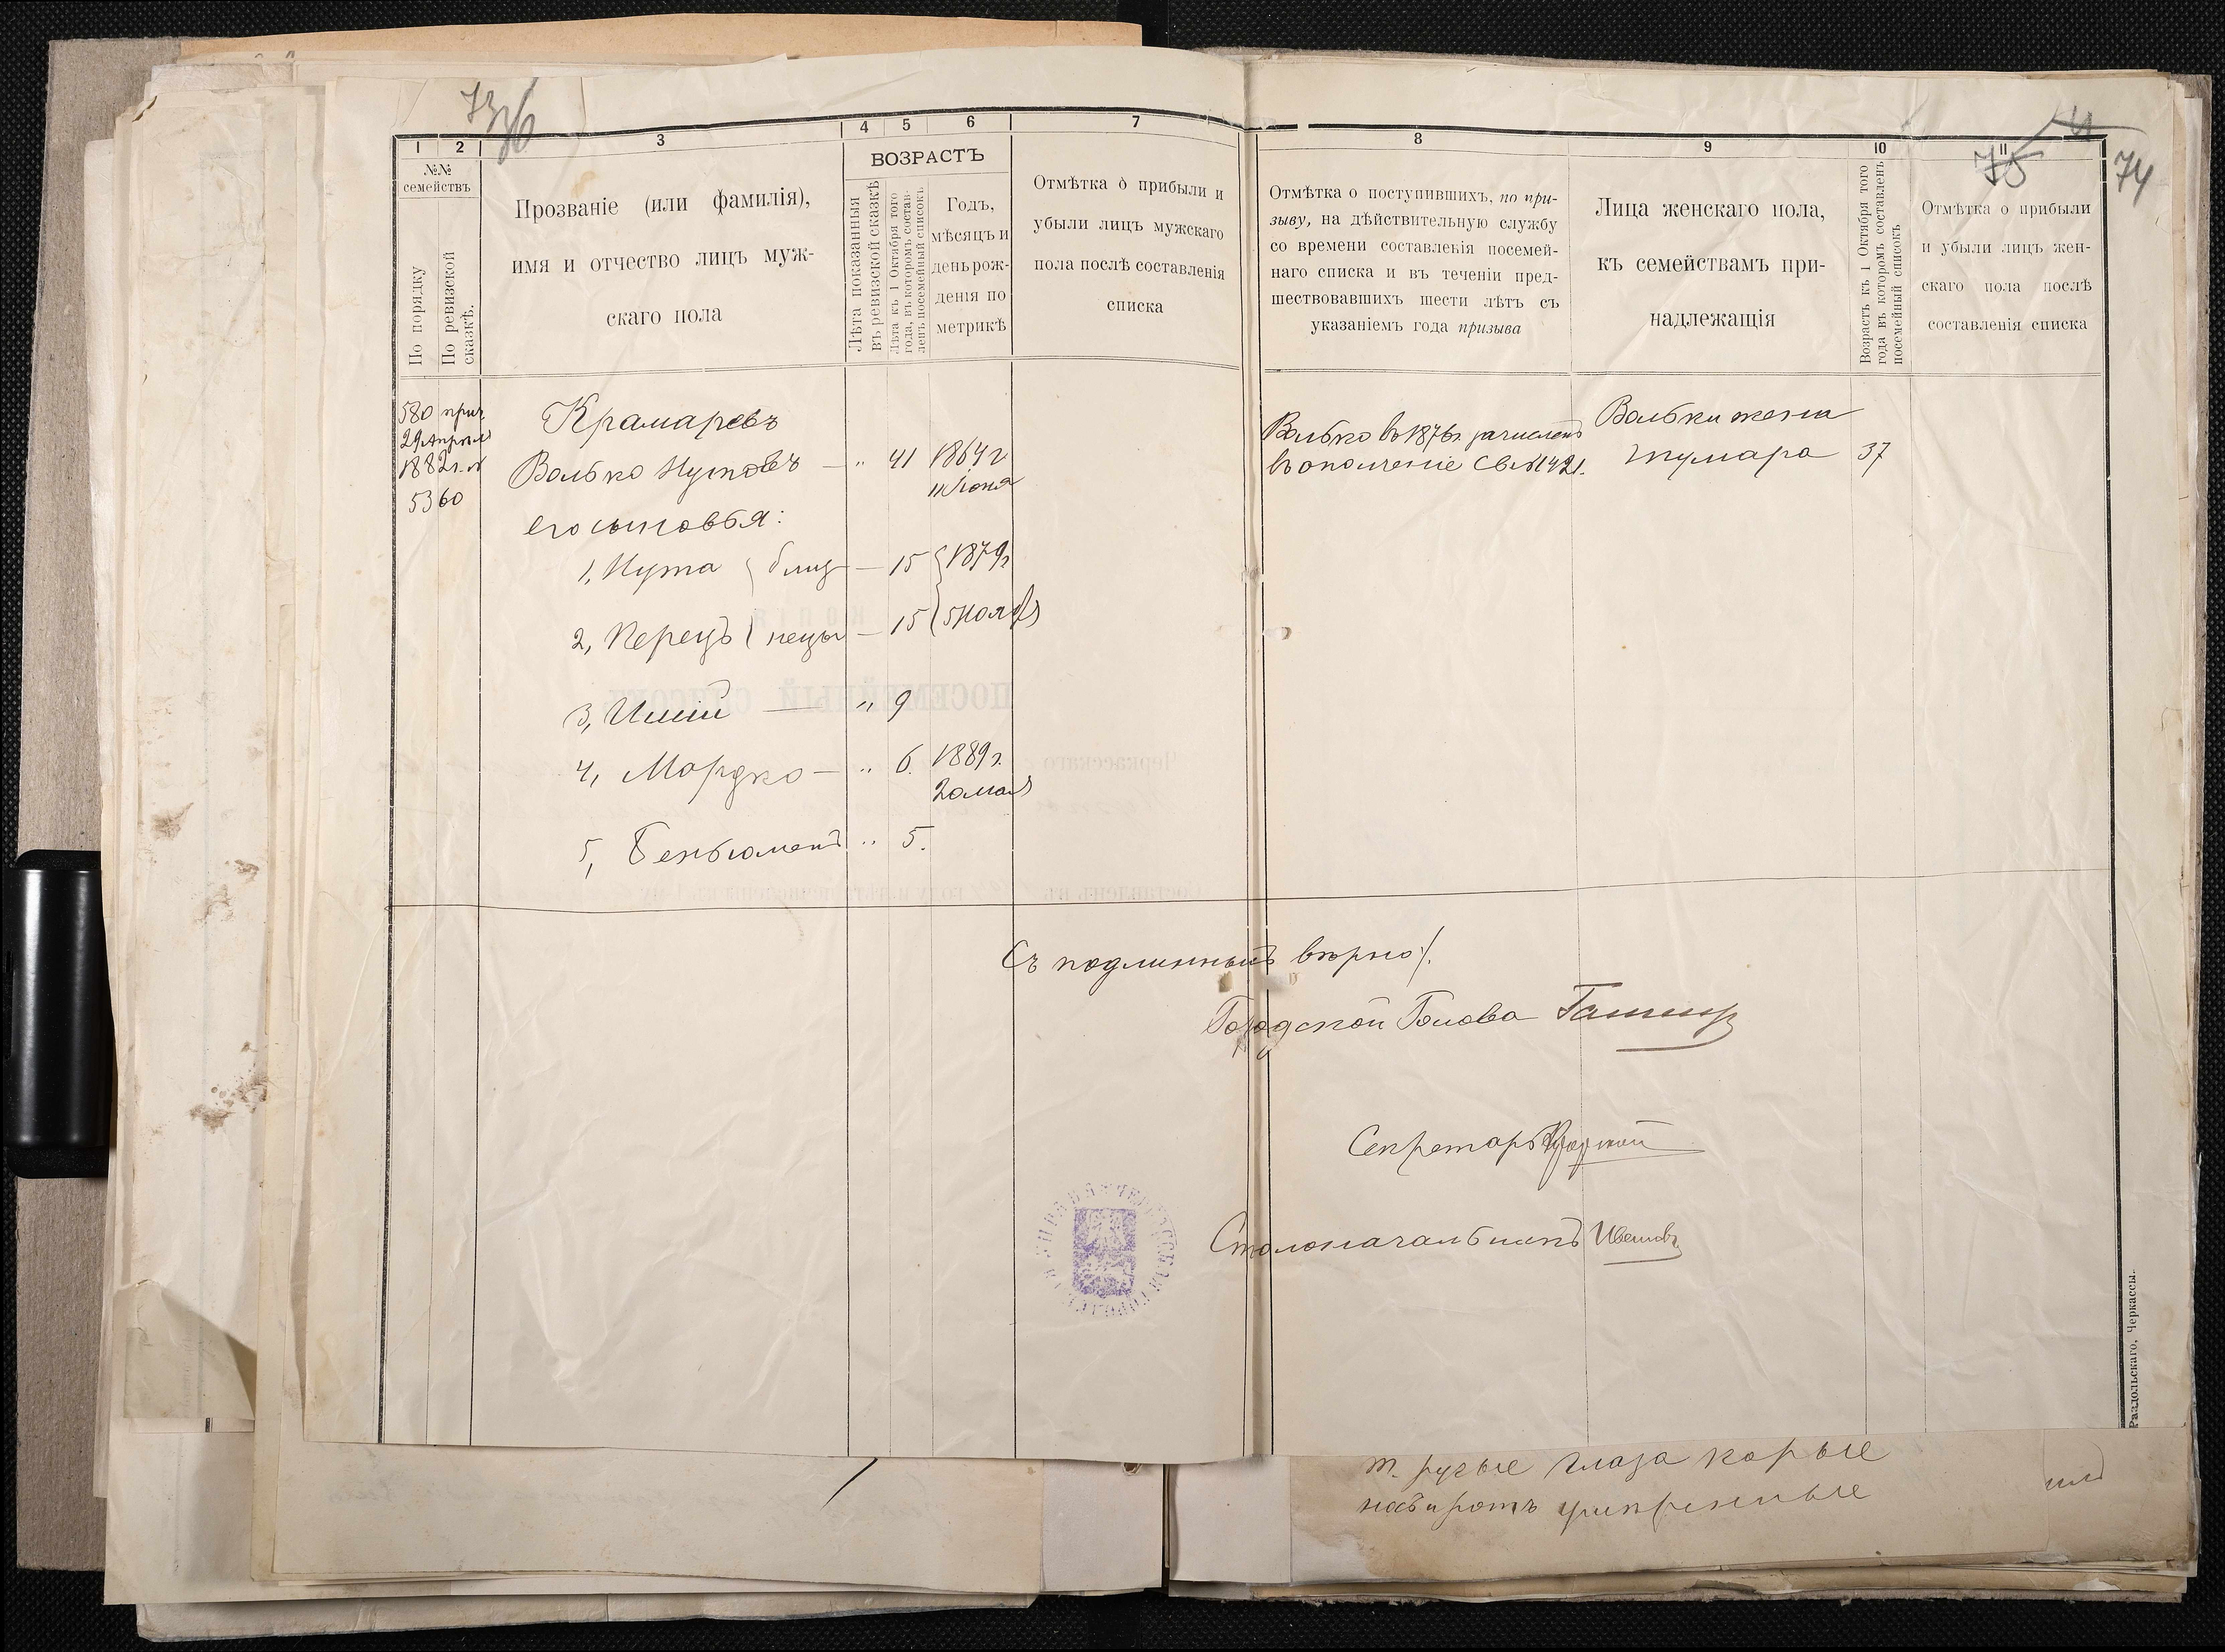 73
36
1
2
3
4
5
6
7
8
9
10
11
75
74
№№ семействъ
По порядку
По ревизской сказкѣ.
Прозваніе (или фамилія),
имя и отчество лицъ муж-
скаго пола
ВОЗРАСТЪ
Лѣта показанныя
въ ревизской сказкѣ
Лѣта къ 1 Октября того
года, въ которомъ состав-
ленъ посемейный списокъ
Годъ,
мѣсяцъ и
день рож-
денія по
метрикѣ
Отмѣтка о прибыли и
убыли лицъ мужскаго
пола послѣ составленія
списка
Отмѣтка о поступившихъ, по при-
зыву, на дѣйствительную службу
со времени составленія посемей-
наго списка и въ теченіи пред-
шествовавшихъ шести лѣтъ съ
указаніемъ года призыва
Лица женскаго пола,
къ семействамъ при-
надлежащія
Возрастъ къ 1 Октября того
года въ которомъ составленъ
посемейный списокъ
Отмѣтка о прибыли
и убыли лицъ жен-
скаго пола послѣ
составленія списка
580 прич.
29 Апрѣля
1882 г. №
5360
Крамаревъ
Волько Нутовъ — " 41 1864 г
11 Юня
его сыновья:
1, Нута близ — 15 1879 г
2, Перецъ нецы — 15 5 Ноября
3, Илій — " 9
4, Мордко — " 6. 1889 г.
20 мая
5, Беньюменъ " 5.
Волько въ 1876 г. зачисленъ
въ ополченіе Св. № 1421.
Вольки жена
Тумара 37
Съ подлиннымъ вѣрно:
Городской Голова
Секретарь
Столоначальникъ Ивановъ
Раздольскаго, Черкассы.
глаза карые
носъ и ротъ умѣренные